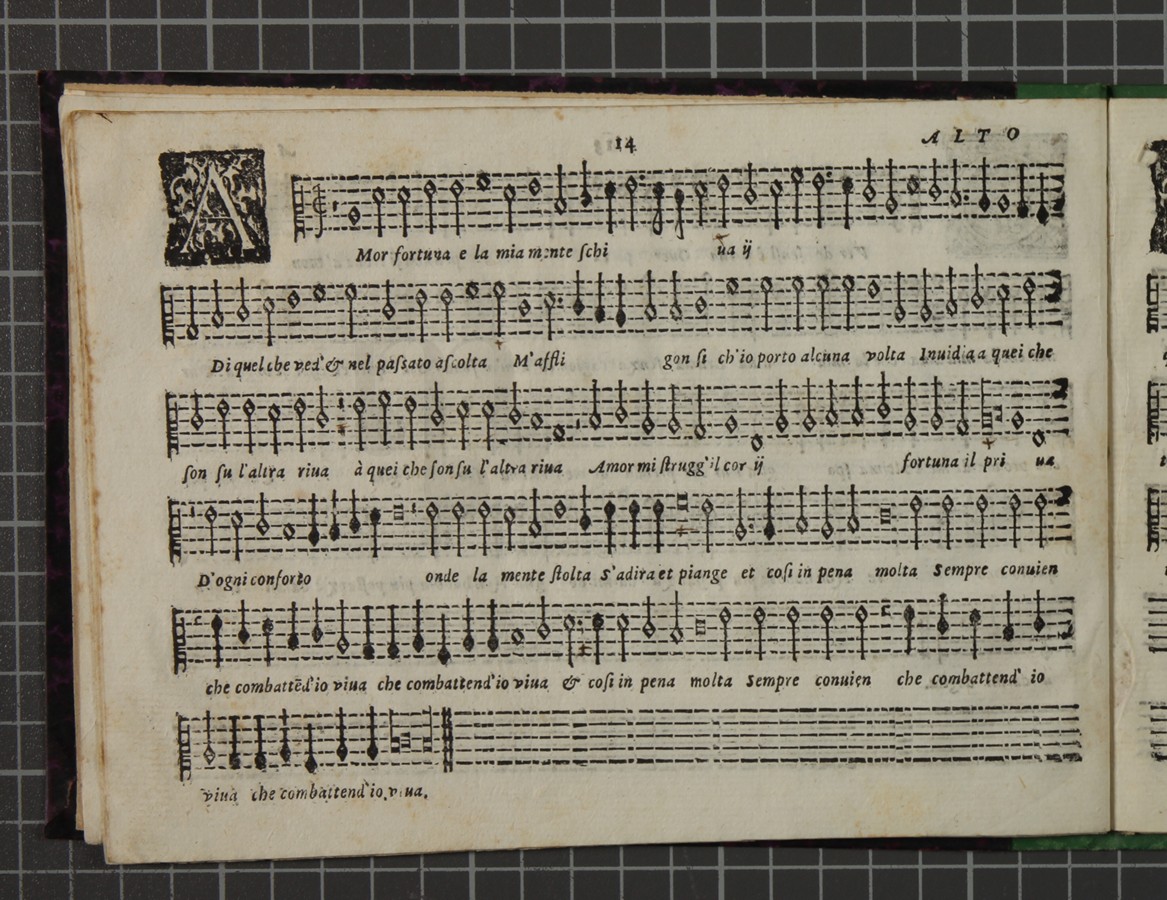 14
ALTO
AMor fortuna e la mia mente ſchi ua ij
Di quel che ved' & nel paſsato aſcolta M'affli gon ſi ch'io porto alcuna volta Inuidia a quei che
ſon ſu l'altra riua à quei che ſon ſu l'altra riua Amor mi ſtrugg' il cor ij fortuna il pri ua
D'ogni conforto onde la mente ſtolta S'adira et piange et coſi in pena molta Sempre conuien
che combattēd' io viua che combattend' io viua & coſi in pena molta Sempre conuien che combattend' io
viua che combattend' io viua.